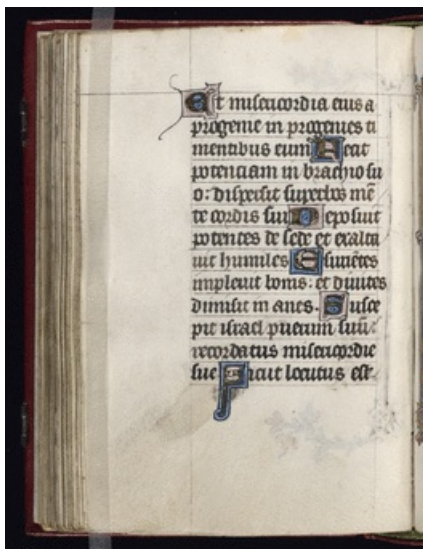 Et misericordia eius a
progenie in progenies ti
mentibus eum Fecit
potenciam in brachio su
o: dispersit superbos mē
te cordis sui Deposuit
potentes de sede et exalta
uit humiles Esuriētes
impleuit bonis: et diuites
dimisit in anes. Susce
pit israel puerum suū:
recordatus misericordie
sue Sicut locutus est